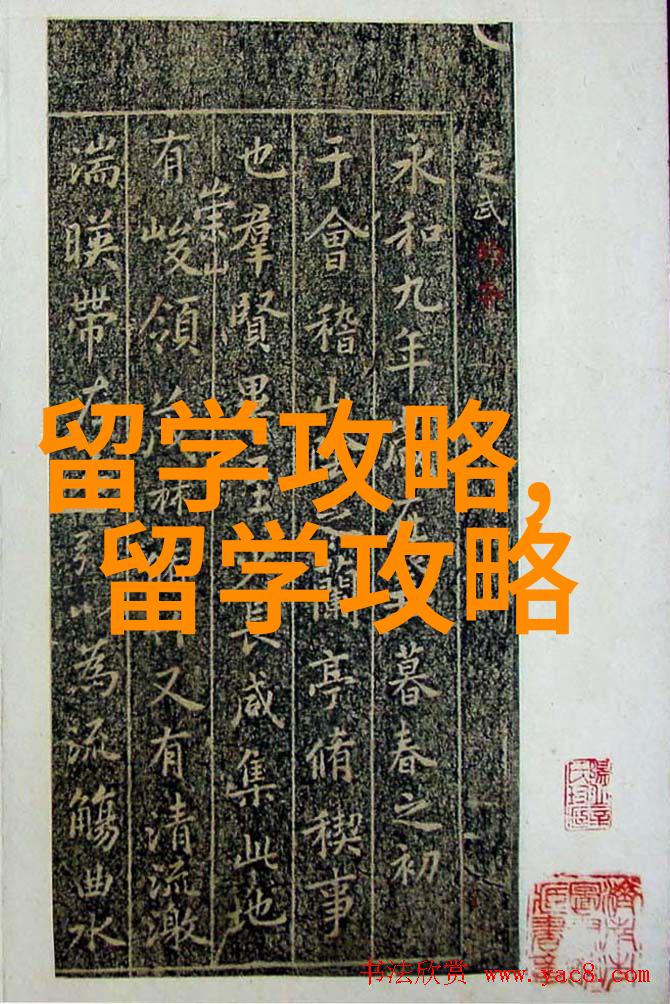 留学攻略,
留学攻略
定武
永和九年在暮春之初
于會稽山之蘭亭脩稧事
也羣賢畢至長咸集此地
有崇山峻領茂林又有清流激
湍暎帶左引以為流觴曲水
书法欣赏 www.yac8.com